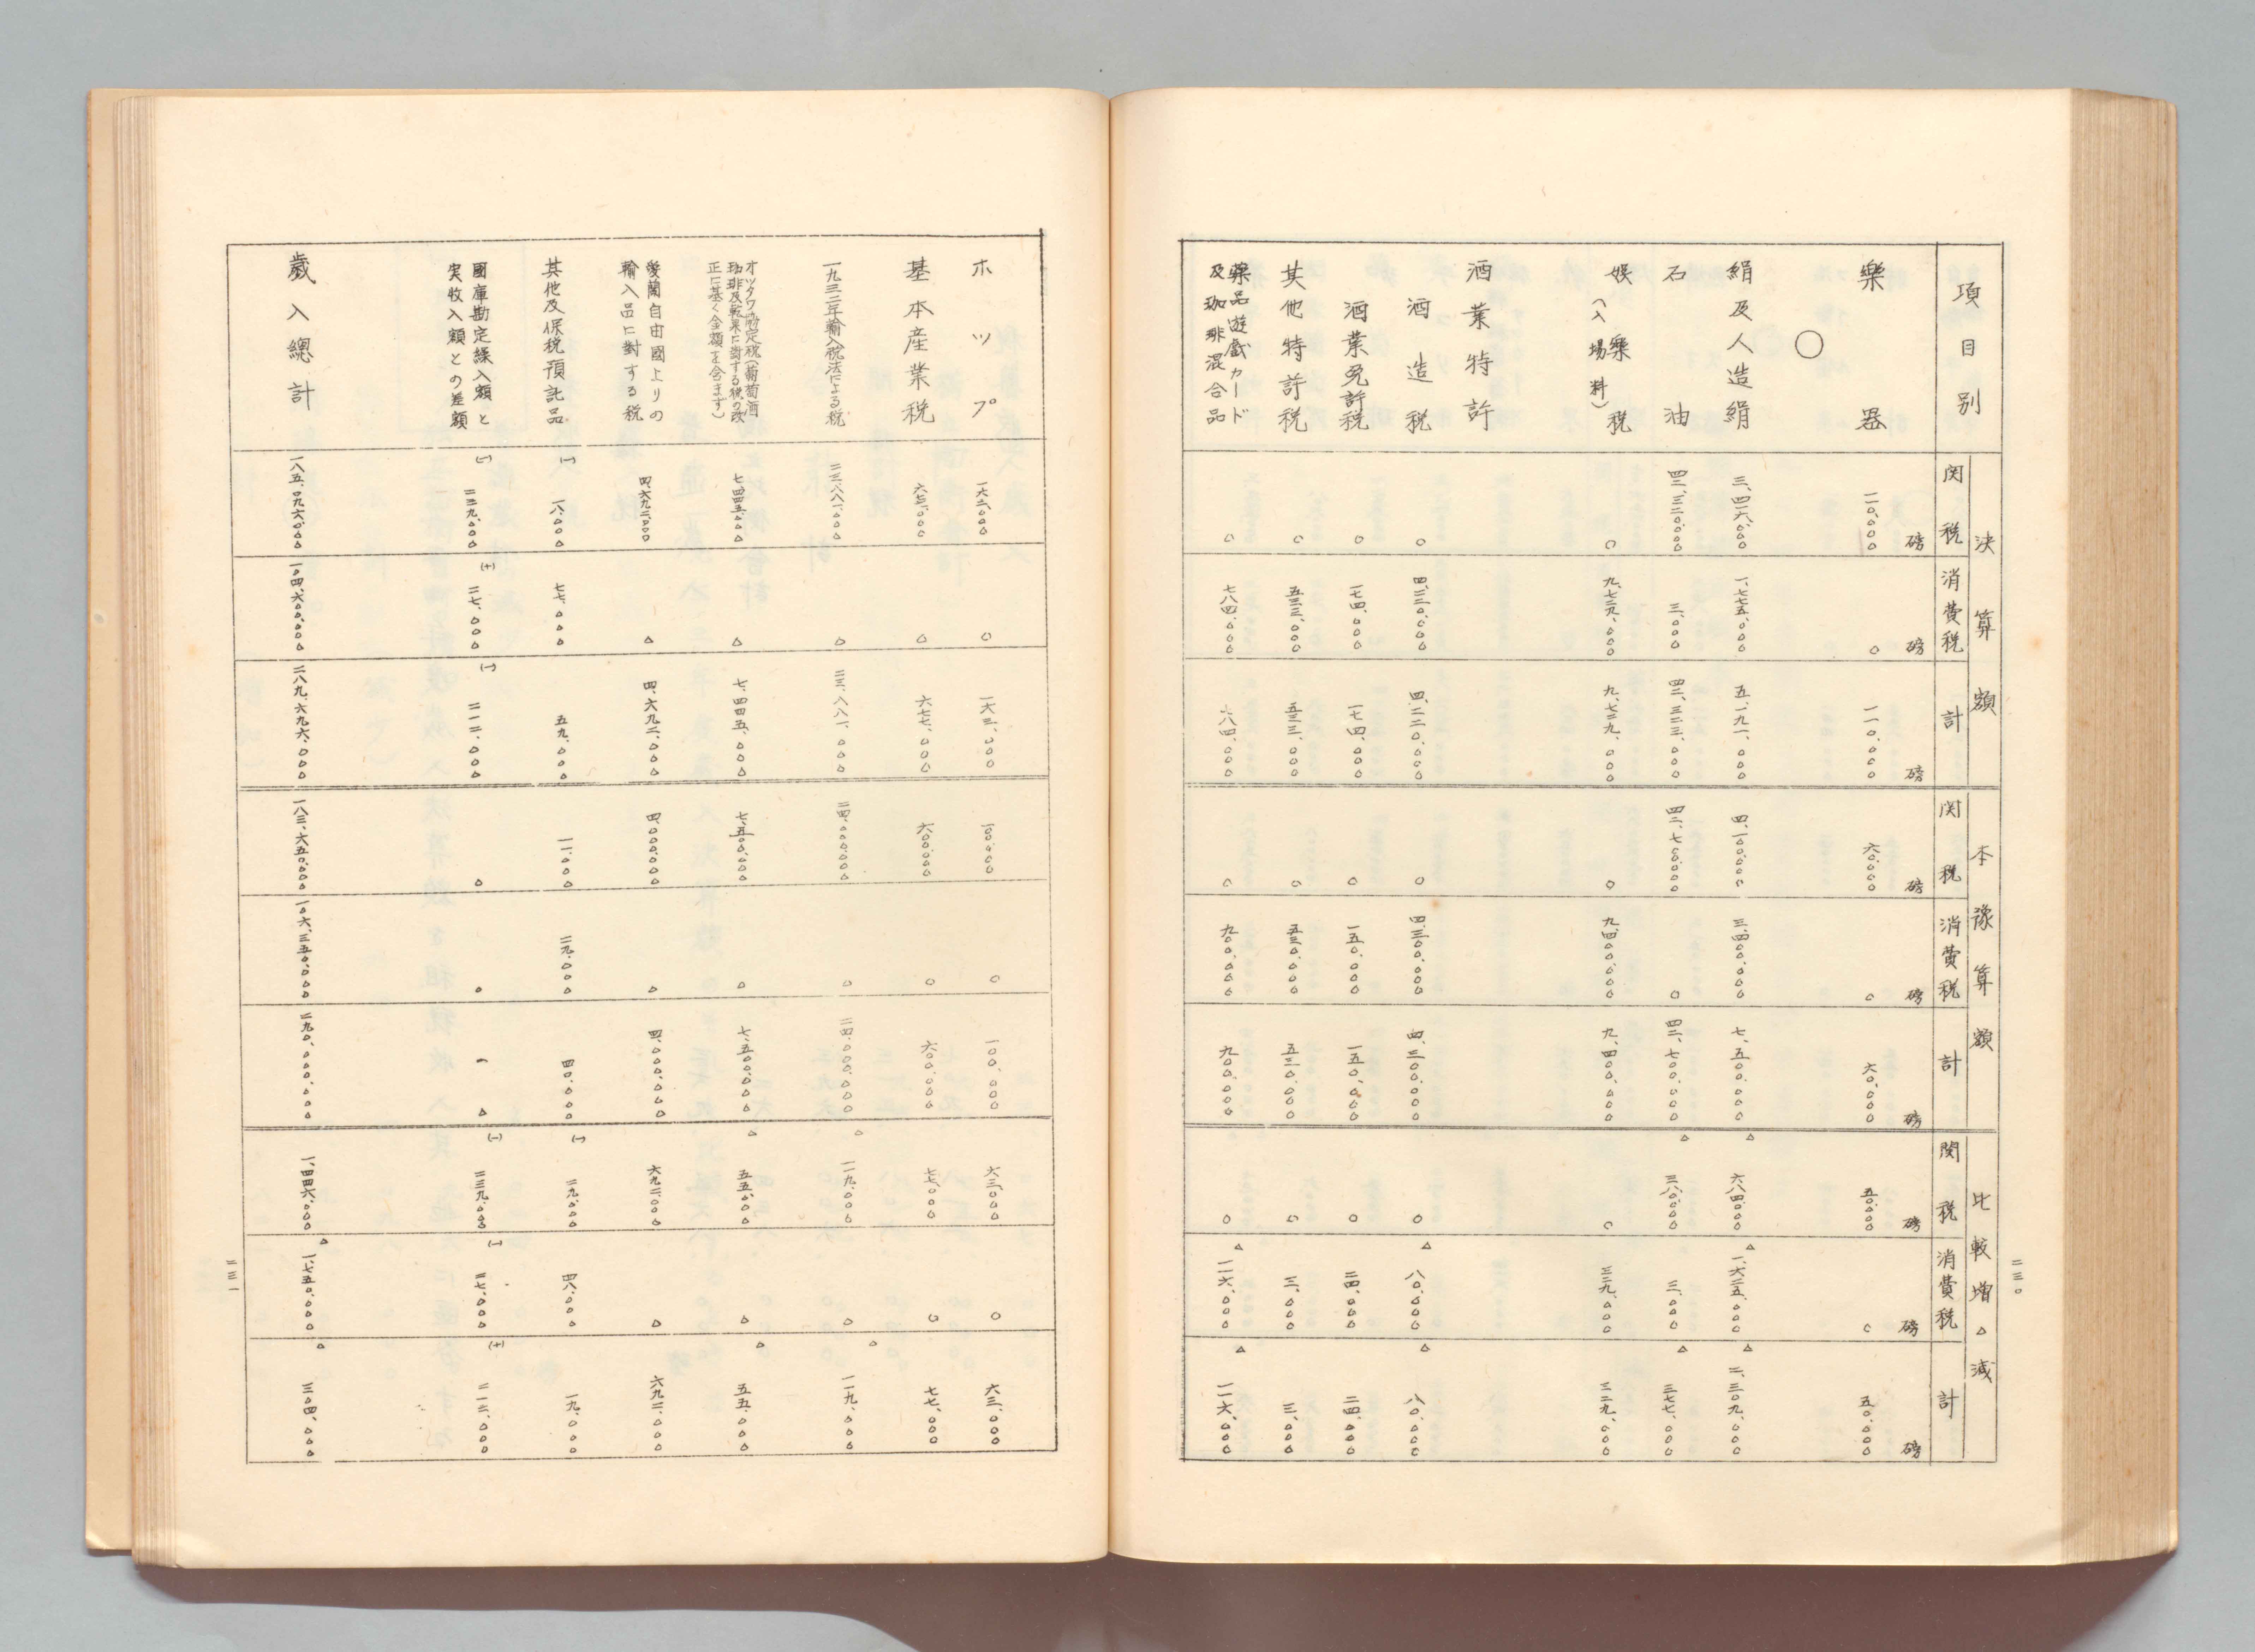 二三〇
項目別 決算額 本豫算額 比較増△減
関税 消費税 計 関税 消費税 計 関税 消費税 計
磅 磅 磅 磅 磅 磅 磅 磅 磅
樂器 一一〇、〇〇〇 〇 一一〇、〇〇〇 六〇、〇〇〇 〇 六〇、〇〇〇 五〇、〇〇〇 〇 五〇、〇〇〇
〇
絹及人造絹 三、四一六、〇〇〇 一、七七五、〇〇〇 五、一九一、〇〇〇 四、一〇〇、〇〇〇 三、四〇〇、〇〇〇 七、五〇〇、〇〇〇 △六八四、〇〇〇 △一、六二五、〇〇〇 △二、三〇九、〇〇〇
石油 四二、三二〇、〇〇〇 三、〇〇〇 四二、三二三、〇〇〇 四二、七〇〇、〇〇〇 〇 四二、七〇〇、〇〇〇 △三八〇、〇〇〇 三、〇〇〇 △三七七、〇〇〇
娯樂税 〇 九、七二九、〇〇〇 九、七二九、〇〇〇 〇 九、四〇〇、〇〇〇 九、四〇〇、〇〇〇 〇 三二九、〇〇〇 三二九、〇〇〇
(入場料)
酒葉特許
酒造税 〇 四、二二〇、〇〇〇 四、二二〇、〇〇〇 〇 四、三〇〇、〇〇〇 四、三〇〇、〇〇〇 〇 △八〇、〇〇〇 △八〇、〇〇〇
酒葉免許税 〇 一七四、〇〇〇 一七四、〇〇〇 〇 一五〇、〇〇〇 一五〇、〇〇〇 〇 二四、〇〇〇 二四、〇〇〇
其他特許税 〇 五三三、〇〇〇 五三三、〇〇〇 〇 五三〇、〇〇〇 五三〇、〇〇〇 〇 三、〇〇〇 三、〇〇〇
藥品遊戯カード
及珈琲混合品 〇 七八四、〇〇〇 七八四、〇〇〇 〇 九〇〇、〇〇〇 九〇〇、〇〇〇 〇 △一一六、〇〇〇 △一一六、〇〇〇
ホップ 一六三、〇〇〇 〇 一六三、〇〇〇 一〇〇、〇〇〇 〇 一〇〇、〇〇〇 六三、〇〇〇 〇 六三、〇〇〇
基本産業税 六七七、〇〇〇 〇 六七七、〇〇〇 六〇〇、〇〇〇 〇 六〇〇、〇〇〇 七七、〇〇〇 〇 七七、〇〇〇
一九三二年輸入税法による税 二三、八八一、〇〇〇 〇 二三、八八一、〇〇〇 二四、〇〇〇、〇〇〇 〇 二四、〇〇〇、〇〇〇 △一一九、〇〇〇 〇 △一一九、〇〇〇
オッタワ協定税(葡萄酒
珈琲及乾果に對する税の改
正に基く金額を含ます) 七、四四五、〇〇〇 〇 七、四四五、〇〇〇 七、五〇〇、〇〇〇 〇 七、五〇〇、〇〇〇 △五五、〇〇〇 〇 △五五、〇〇〇
愛蘭自由國よりの
輸入品に對する税 四、六九二、〇〇〇 〇 四、六九二、〇〇〇 四、〇〇〇、〇〇〇 〇 四、〇〇〇、〇〇〇 六九二、〇〇〇 〇 六九二、〇〇〇
其他及保税預託品 (一)一八、〇〇〇 七七、〇〇〇 五九、〇〇〇 一一、〇〇〇 二九、〇〇〇 四〇、〇〇〇 (一)二九、〇〇〇 四八、〇〇〇 一九、〇〇〇
國庫勘定繰入額と
実收入額との差額 (一)二三九、〇〇〇 (+)二七、〇〇〇 (一)二一二、〇〇〇 〇 〇 〇 (一)二三九、〇〇〇 (一)二七、〇〇〇 (+)二一二、〇〇〇
歳入總計 一八五、〇九六、〇〇〇 一〇四、六〇〇、〇〇〇 二八九、六九六、〇〇〇 一八三、六五〇、〇〇〇 一〇六、三五〇、〇〇〇 二九〇、〇〇〇、〇〇〇 一、四四六、〇〇〇 △一、七五〇、〇〇〇 △三〇四、〇〇〇
二三一